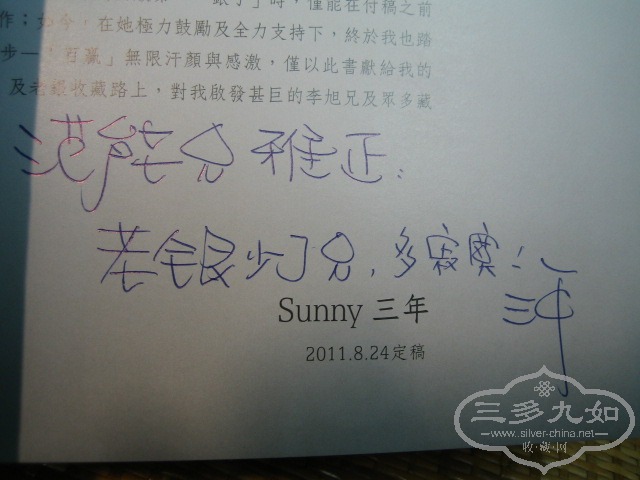 」時，僅能在付稿之前
作；如今，在她極力鼓勵及全力支持下，終於我也踏
步—「 」無限汗顏與感激，僅以此書獻給我的
及老銀收藏路上，對我啟發甚巨的李旭兄及眾多藏
能兄 雅正：
老銀少了兄，多寂寞！
三年
Sunny 三年
2011.8.24定稿
三多九如
www.silver-china.net
收·藏·网